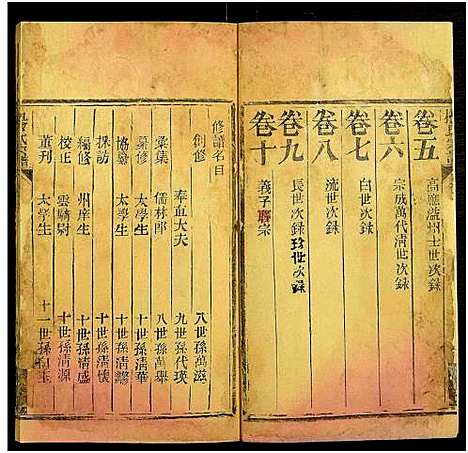 卷五 高應溢州士世次錄
卷六 宗成萬代清世次錄
卷七 白世次錄
卷八 沇世次錄
卷九 長世次錄 珍世次錄
卷十 義子聯宗
修譜名目
創修 八世孫萬滋
奉直大夫 九世孫代瑛
彙集 儒林郎 八世孫萬舉
纂修 太學生 十世孫清華
協纂 太學生 十世孫清
採訪 十世孫清懷
編修 州庠生 十世孫清盛
校正 雲騎尉 十世孫清源
董刊 太學生 十一世孫玉